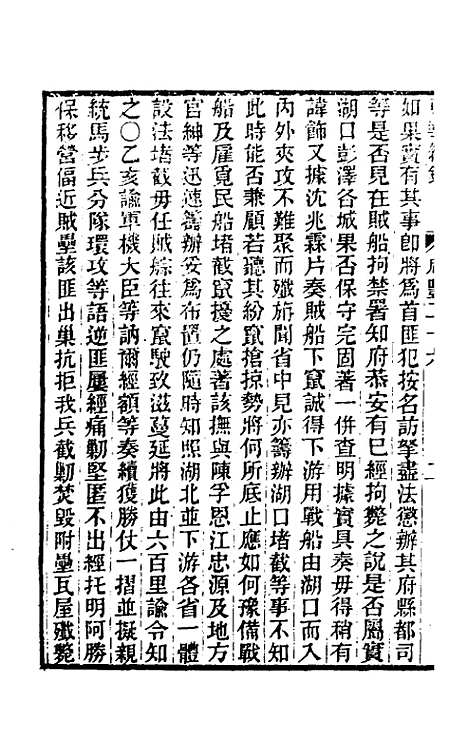 如果實有其事卽將爲首匪犯按名訪拏盡法懲辦其府縣都司
等是否見在賊船拘禁署知府恭安有已經拘斃之說是否屬實
湖口彭澤各城果否保守完固著一併查明據實具奏毋得稍有
諱飾又據沈兆霖片奏賊船下竄誠得下游用戰船由湖口而入
內外夾攻不難聚而殲旃聞省中見亦籌辦湖口堵截等事不知
此時能否兼顧若聽其紛竄搶掠勢將何所底止應如何豫備戰
船及雇覓民船堵截竄擾之處著該撫與陳孚恩江忠源及地方
官紳等迅速籌辦妥爲布置仍隨時知照湖北並下游各省一體
設法堵截毋任賊蹤往來竄駛致滋蔓延將此由六百里諭令知
之〇乙亥諭軍機大臣等訥爾經額等奏續獲勝仗一摺並擬親
統馬步兵分隊環攻等語逆匪屢經痛勦堅匿不出經托明阿勝
保移營偪近賊壘該匪出巢抗拒我兵截勦焚毀附壘瓦屋殲斃